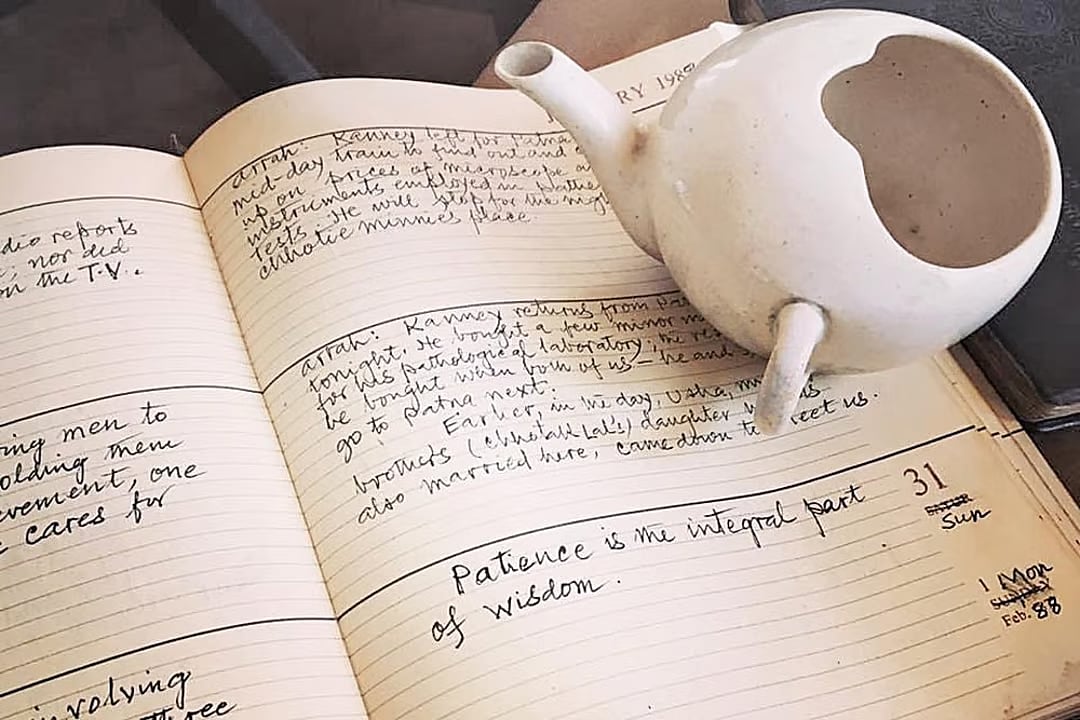 dio reports
nor did
on the T.V..
ring men to
olding them
evement, one
cares for
nvolving
ree
RY 198
arrah: Kanney left for Patna
mid-day train to find out and
up on prices of microscope
instruments employed in
tests. He will stop for the nigh
chhotie minnie's place.
arrah: Kanney returns from
tonight. He bought a few minor
for his pathological laboratory; the
be bought when both of us – he and
go to Patna next.
Earlier, in the day, Usha,
brothers (Chhotak Lal's) daughter
also married here, came down to eet us.
Patience is the integral part
of wisdom.
31
Sun
1 Mon
Feb. 88